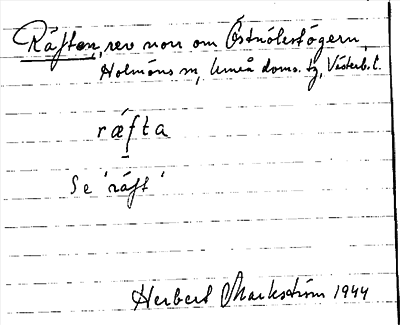 Räften, rev norr om Östnölestögern,
Holmöns sn, Umeå doms. tg, Västerb. l.
rǽfta
Se 'räft'
Herbert Markström 1944